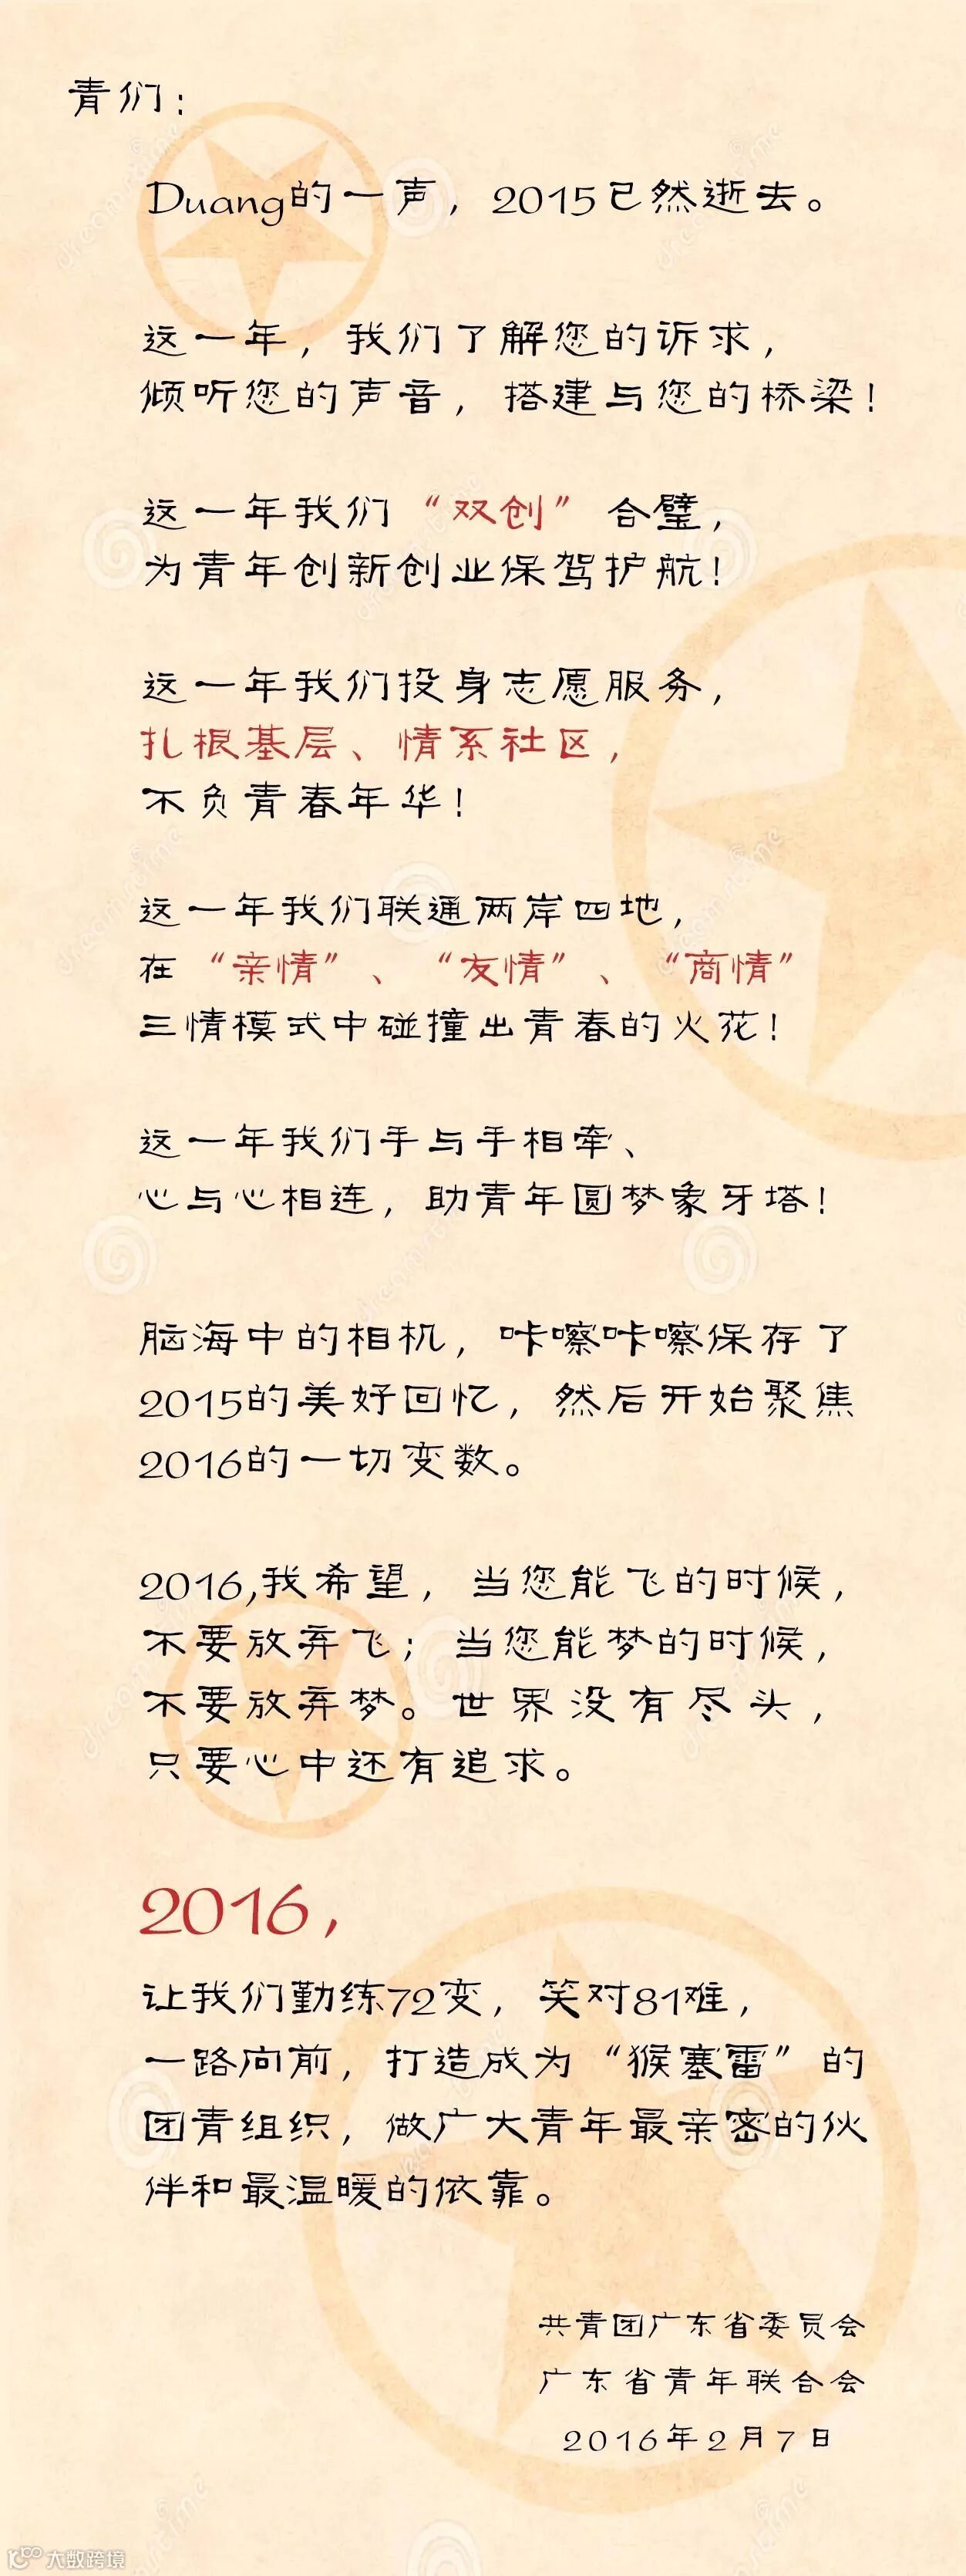 青们：
Duang的一声，2015已然逝去。
这一年，我们了解您的诉求，
倾听您的声音，搭建与您的桥梁！
这一年我们“双创”合璧，
为青年创新创业保驾护航！
这一年我们投身志愿服务，
扎根基层、情系社区，
不负青春年华！
这一年我们联通两岸四地，
在“亲情”、“友情”、“商情”
三情模式中碰撞出青春的火花！
这一年我们手与手相牵、
心与心相连，助青年圆梦象牙塔！
脑海中的相机，咔嚓咔嚓保存了
2015的美好回忆，然后开始聚焦
2016的一切变数。
2016,我希望，当您能飞的时候，
不要放弃飞；当您能梦的时候，
不要放弃梦。世界没有尽头，
只要心中还有追求。
2016，
让我们勤练72变，笑对81难，
一路向前，打造成为“猴塞雷”的
团青组织，做广大青年最亲密的伙
伴和最温暖的依靠。
共青团广东省委员会
广东省青年联合会
2016年2月7日
大数跨境